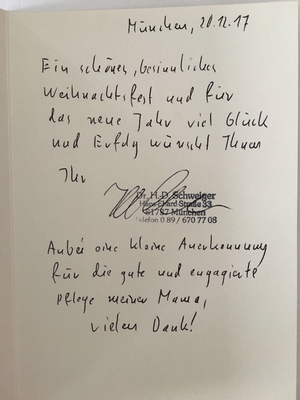 München, 20.12.17
Ein schönes, besinnliches
Weihnachtsfest und für
das neue Jahr viel Glück
und Erfolg wünscht Ihnen
Ihr
Dr. H. D. Schweiger
Hans Ehard Straße 33
81737 München
Telefon 0 89 / 670 77 08
Anbei eine kleine Anerkennung
für die gute und engagierte
Pflege meiner Mama,
vielen Dank!